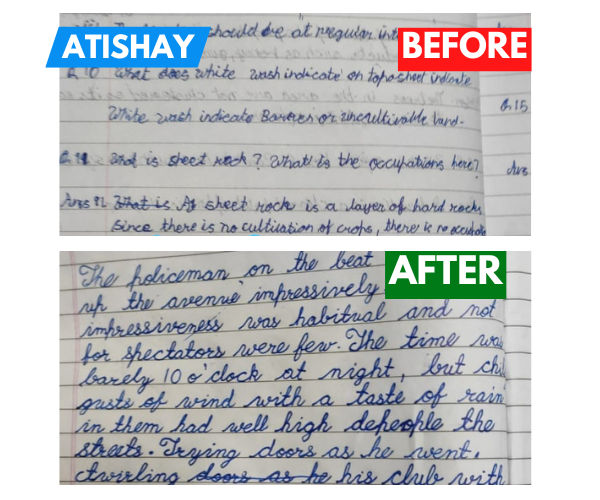 ATISHAY
BEFORE
should be at regular int
Q.10 What does white wash indicate on toposheet indicate
White wash indicate Barren or uncultivable land.
Q.15
Q.11 What is sheet rock? What is the occupations here?
Ans
Ans 11 What is A sheet rock is a layer of hard rocks
since there is no cultivation of crops, there is no
AFTER
The policeman on the beat
up the avenue impressively
impressiveness was habitual and not
for spectators were few. The time was
barely 10 o'clock at night, but chi
gusts of wind with a taste of rain
in them had well high depeople the
streets. Trying doors as he went,
twirling doors as he his club with